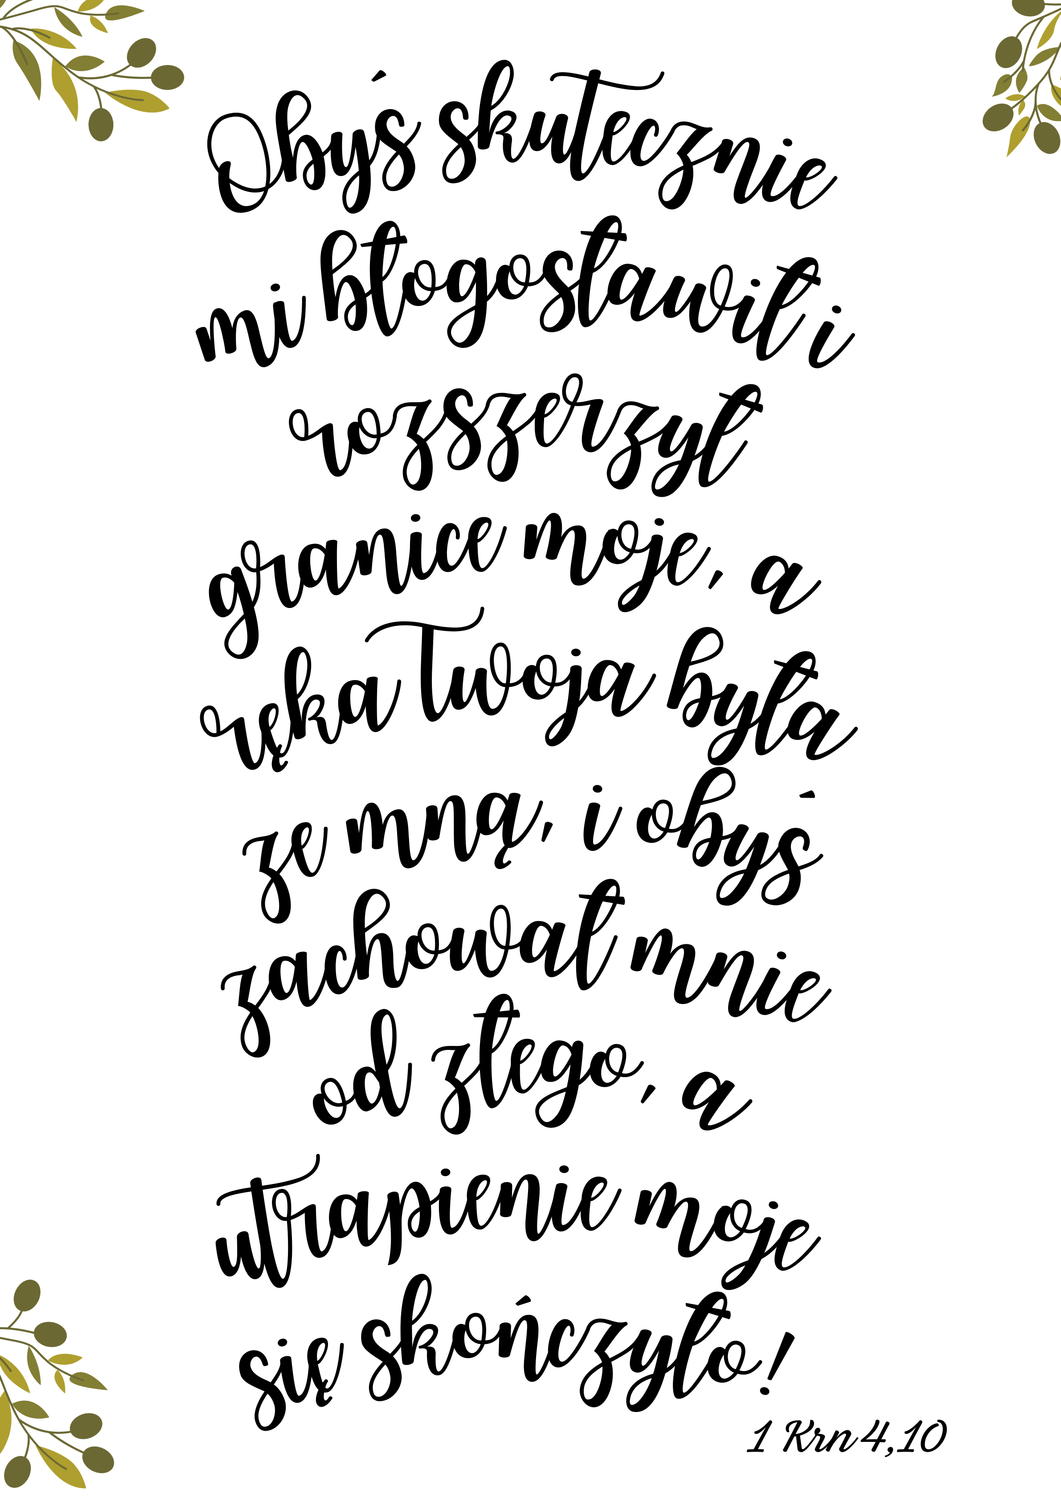 Obyś skutecznie
mi błogosławił i
rozszerzył
granice moje, a
ręka Twoja była
ze mną, i obyś
zachował mnie
od złego, a
utrapienie moje
się skończyło!
1 Krn 4,10